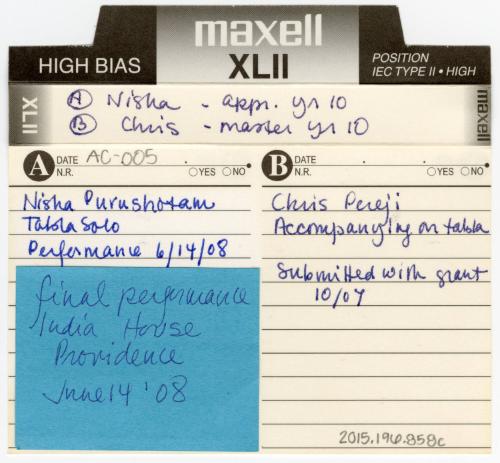 maxell
HIGH BIAS
XLII
POSITION
IEC TYPE II • HIGH
XLII
Ⓐ Nisha - appr. yr 10
Ⓑ Chris - master yr 10
maxell
A DATE AC-005
N.R. ○YES ○NO
Nisha Purushotam
Tabla Solo
Performance 6/14/08
final performance
India House
Providence
June 14 '08
B DATE
N.R. ○YES ○NO
Chris Pereji
Accompanying on tabla
Submitted with grant
10/07
2015.196.858c